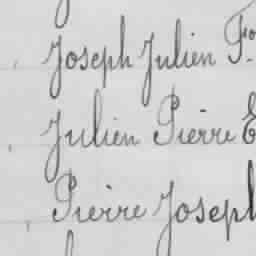 Joseph Julien Fo
Julien Pierre E
Pierre Joseph